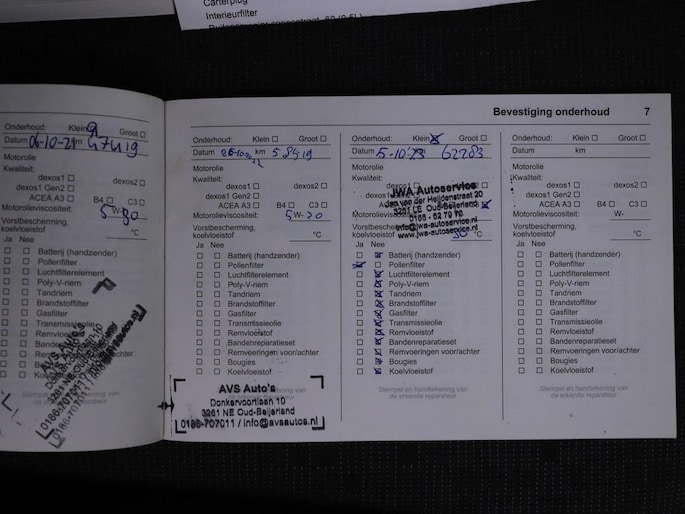 Carterplug
Interieurfilter
Bevestiging onderhoud 7
Onderhoud: Klein ☐ Groot ☐
Datum 06-10-21 km 47419
Motorolie
Kwaliteit:
dexos1 ☐ dexos2 ☐
dexos1 Gen2 ☐
ACEA A3 ☐ B4 ☐ C3 ☐
Motorolieviscositeit: 5 W- 30
Vorstbescherming,
koelvloeistof °C
Ja Nee
☐ ☐ Batterij (handzender)
☐ ☐ Pollenfilter
☐ ☐ Luchtfilterelement
☐ ☐ Poly-V-riem
☐ ☐ Tandriem
☐ ☐ Brandstoffilter
☐ ☐ Gasfilter
☐ ☐ Transmissieolie
☐ ☐ Remvloeistof
☐ ☐ Bandenreparatieset
☐ ☐ Remvoeringen voor/achter
☐ ☐ Bougies
☐ ☐ Koelvloeistof
AVS Auto's
3261 NE Oud-Beijerland
Onderhoud: Klein ☐ Groot ☐
Datum km 58419
Motorolie
Kwaliteit:
dexos1 ☐ dexos2 ☐
dexos1 Gen2 ☐
ACEA A3 ☐ B4 ☐ C3 ☐
Motorolieviscositeit: 5 W- 30
Vorstbescherming,
koelvloeistof °C
Ja Nee
☐ ☐ Batterij (handzender)
☐ ☐ Pollenfilter
☐ ☐ Luchtfilterelement
☐ ☐ Poly-V-riem
☐ ☐ Tandriem
☐ ☐ Brandstoffilter
☐ ☐ Gasfilter
☐ ☐ Transmissieolie
☐ ☐ Remvloeistof
☐ ☐ Bandenreparatieset
☐ ☐ Remvoeringen voor/achter
☐ ☐ Bougies
☐ ☐ Koelvloeistof
AVS Auto's
Donkervoortlaan 10
3261 NE Oud-Beijerland
0186-707011 / info@avsautos.nl
Onderhoud: Klein ☒ Groot ☐
Datum 5-10-23 62283
Motorolie
Kwaliteit:
dexos1 ☐ dexos2 ☐
JWA Autoservice
Jan van der Heijdenstraat 20
3261 LE Oud-Beijerland
0186 - 62 79 70
info@jwa-autoservice.nl
www.jwa-autoservice.nl
koelvloeistof 30 °C
Ja Nee
☐ ☒ Batterij (handzender)
☒ ☐ Pollenfilter
☐ ☒ Luchtfilterelement
☐ ☒ Poly-V-riem
☐ ☒ Tandriem
☐ ☒ Brandstoffilter
☐ ☒ Gasfilter
☐ ☒ Transmissieolie
☐ ☒ Remvloeistof
☐ ☒ Bandenreparatieset
☐ ☒ Remvoeringen voor/achter
☐ ☒ Bougies
☐ ☒ Koelvloeistof
Stempel en handtekening van
de erkende reparateur
Onderhoud: Klein ☐ Groot ☐
Datum km
Motorolie
Kwaliteit:
dexos1 ☐ dexos2 ☐
dexos1 Gen2 ☐
ACEA A3 ☐ B4 ☐ C3 ☐
Motorolieviscositeit: W-
Vorstbescherming,
koelvloeistof °C
Ja Nee
☐ ☐ Batterij (handzender)
☐ ☐ Pollenfilter
☐ ☐ Luchtfilterelement
☐ ☐ Poly-V-riem
☐ ☐ Tandriem
☐ ☐ Brandstoffilter
☐ ☐ Gasfilter
☐ ☐ Transmissieolie
☐ ☐ Remvloeistof
☐ ☐ Bandenreparatieset
☐ ☐ Remvoeringen voor/achter
☐ ☐ Bougies
☐ ☐ Koelvloeistof
Stempel en handtekening van
de erkende reparateur